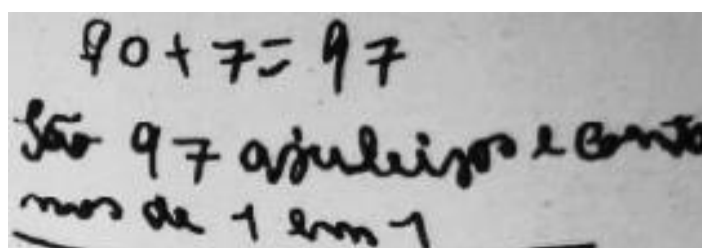 90+7=97
São 97 ajuleijos e conta
mos de 1 em 1